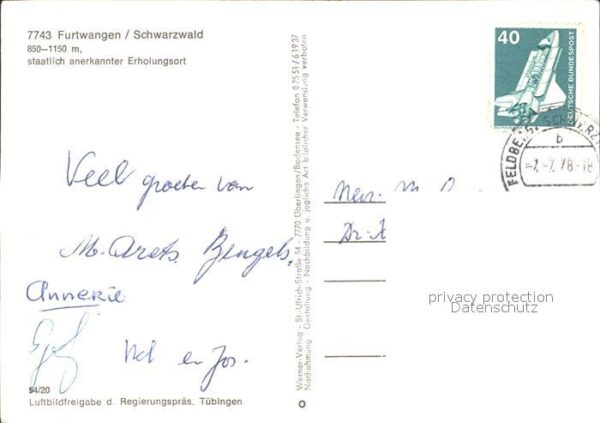 7743 Furtwangen / Schwarzwald
850–1150 m,
staatlich anerkannter Erholungsort
Veel groeten van
M. Arets Bengels,
Annerie
Nel en Jos.
54/20
Luftbildfreigabe d. Regierungspräs. Tübingen
Werner-Verlag · St.-Ulrich-Straße 54 · 7770 Überlingen/Bodensee · Telefon 07551/61937
Nachahmung · Gestaltung · Nachbildung u. jegliche Art bildlicher Verwendung verboten
40
DEUTSCHE BUNDESPOST
FELDBERG SCHWARZW
b
-7.-7.78-18
Dr.
privacy protection
Datenschutz